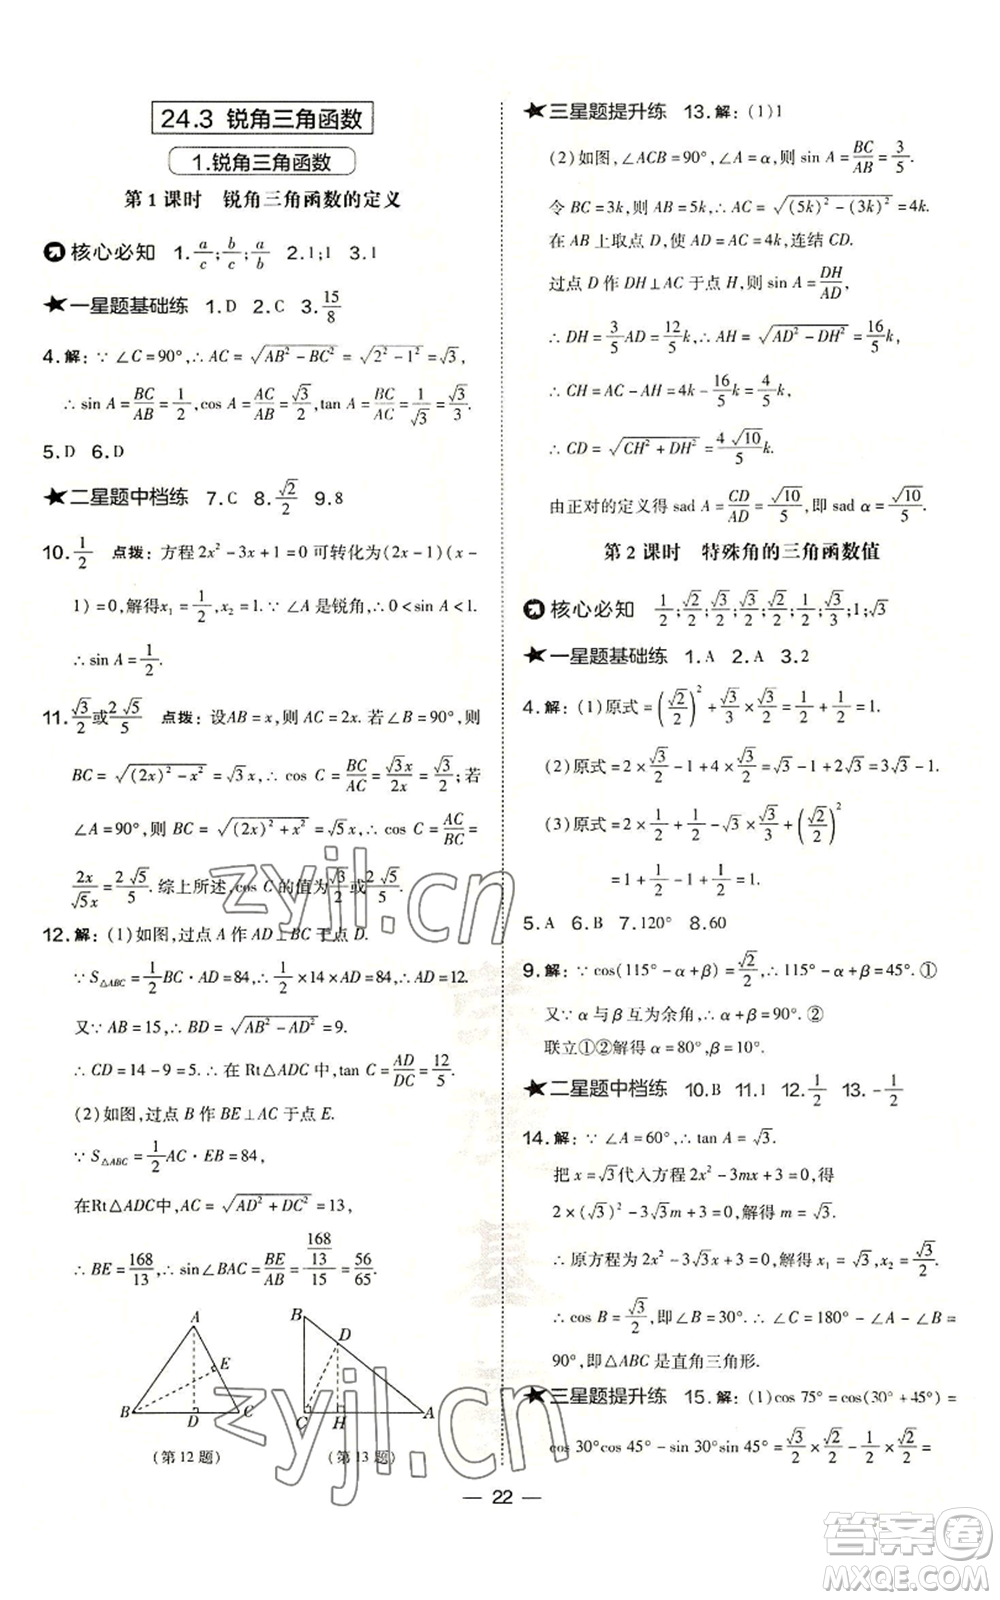 24.3 锐角三角函数
1.锐角三角函数
第1课时 锐角三角函数的定义
核心必知 1. a/c; b/c; a/b 2.1;1 3.1
★一星题基础练 1.D 2.C 3. 15/8
4.解:∵∠C=90°,∴AC=√(AB²-BC²)=√(2²-1²)=√3,
∴sin A=BC/AB=1/2,cos A=AC/AB=√3/2,tan A=BC/AC=1/√3=√3/3.
5.D 6.D
★二星题中档练 7.C 8. √2/2 9.8
10. 1/2 点拨:方程2x²-3x+1=0可转化为(2x-1)(x-
1)=0,解得x₁=1/2,x₂=1.∵∠A是锐角,∴0<sin A<1.
∴sin A=1/2.
11. √3/2或2√5/5 点拨:设AB=x,则AC=2x.若∠B=90°,则
BC=√((2x)²-x²)=√3x,∴cos C=BC/AC=√3x/2x=√3/2;若
∠A=90°,则BC=√((2x)²+x²)=√5x,∴cos C=AC/BC=
2x/√5x=2√5/5.综上所述,cos C的值为√3/2或2√5/5.
12.解:(1)如图,过点A作AD⊥BC于点D.
∵S△ABC=1/2BC·AD=84,∴1/2×14×AD=84,∴AD=12.
又∵AB=15,∴BD=√(AB²-AD²)=9.
∴CD=14-9=5.∴在Rt△ADC中,tan C=AD/DC=12/5.
(2)如图,过点B作BE⊥AC于点E.
∵S△ABC=1/2AC·EB=84,
在Rt△ADC中,AC=√(AD²+DC²)=13,
∴BE=168/13,∴sin∠BAC=BE/AB=(168/13)/15=56/65.
A
E
B D C
(第12题)
B
D
C H A
(第13题)
★三星题提升练 13.解:(1)1
(2)如图,∠ACB=90°,∠A=α,则sin A=BC/AB=3/5.
令BC=3k,则AB=5k,∴AC=√((5k)²-(3k)²)=4k.
在AB上取点D,使AD=AC=4k,连结CD.
过点D作DH⊥AC于点H,则sin A=DH/AD,
∴DH=3/5AD=12/5k,∴AH=√(AD²-DH²)=16/5k,
∴CH=AC-AH=4k-16/5k=4/5k,
∴CD=√(CH²+DH²)=4√10/5k.
由正对的定义得sad A=CD/AD=√10/5,即sad α=√10/5.
第2课时 特殊角的三角函数值
核心必知 1/2;√2/2;√3/2;√3/2;√2/2;1/2;√3/3;1;√3
★一星题基础练 1.A 2.A 3.2
4.解:(1)原式=(√2/2)²+√3/3×√3/2=1/2+1/2=1.
(2)原式=2×√3/2-1+4×√3/2=√3-1+2√3=3√3-1.
(3)原式=2×1/2+1/2-√3×√3/3+(√2/2)²
=1+1/2-1+1/2=1.
5.A 6.B 7.120° 8.60
9.解:∵cos(115°-α+β)=√2/2,∴115°-α+β=45°.①
又∵α与β互为余角,∴α+β=90°.②
联立①②解得α=80°,β=10°.
★二星题中档练 10.B 11.1 12. 1/2 13. -1/2
14.解:∵∠A=60°,∴tan A=√3.
把x=√3代入方程2x²-3mx+3=0,解得
2×(√3)²-3√3m+3=0,解得m=√3.
∴原方程为2x²-3√3x+3=0,解得x₁=√3,x₂=√3/2.
∴cos B=√3/2,∴∠B=30°.∴∠C=180°-∠A-∠B=
90°,即△ABC是直角三角形.
★三星题提升练 15.解:(1)cos 75°=cos(30°+45°)=
cos 30°cos 45°-sin 30°sin 45°=√3/2×√2/2-1/2×√2/2=
22
zyjl.cn
zyjl.cn
答案卷
MXQE.COM